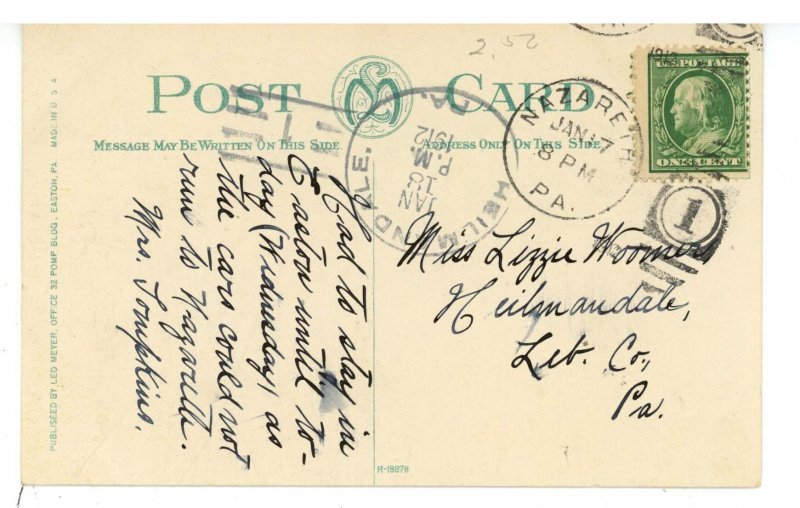 2.52
POST CARD
MESSAGE MAY BE WRITTEN ON THIS SIDE
ADDRESS ONLY ON THIS SIDE
U.S. POSTAGE
ONE CENT
NAZARETH
JAN 17
8 PM
PA.
1912
1
HEILMANDALE.
PA.
JAN
18
P.M.
1912
1
Miss Lizzie Woomer
Heilmandale,
Leb. Co.,
Pa.
Had to stay in
Easton until to-
day (Wednesday) as
the cars could not
run to Nazareth.
Mrs. Tompkins.
PUBLISHED BY LEO MEYER, OFFICE 32 POMP BLDG. EASTON, PA. MADE IN U S A
R-18878